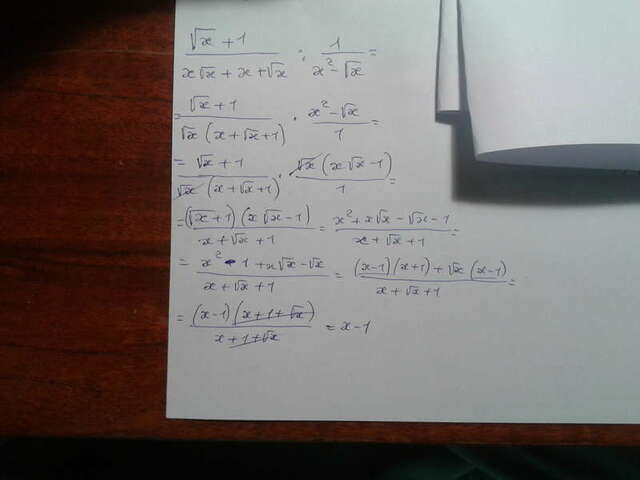 (√x + 1)/(x√x + x + √x) : 1/(x² - √x) =
= (√x + 1)/(√x (x + √x + 1)) · (x² - √x)/1 =
= (√x + 1)/(√x (x + √x + 1)) · (√x (x√x - 1))/1 =
= ((√x + 1)(x√x - 1))/(x + √x + 1) = (x² + x√x - √x - 1)/(x + √x + 1) =
= (x² - 1 + x√x - √x)/(x + √x + 1) = ((x-1)(x+1) + √x (x-1))/(x + √x + 1) =
= ((x-1)(x + 1 + √x))/(x + 1 + √x) = x - 1